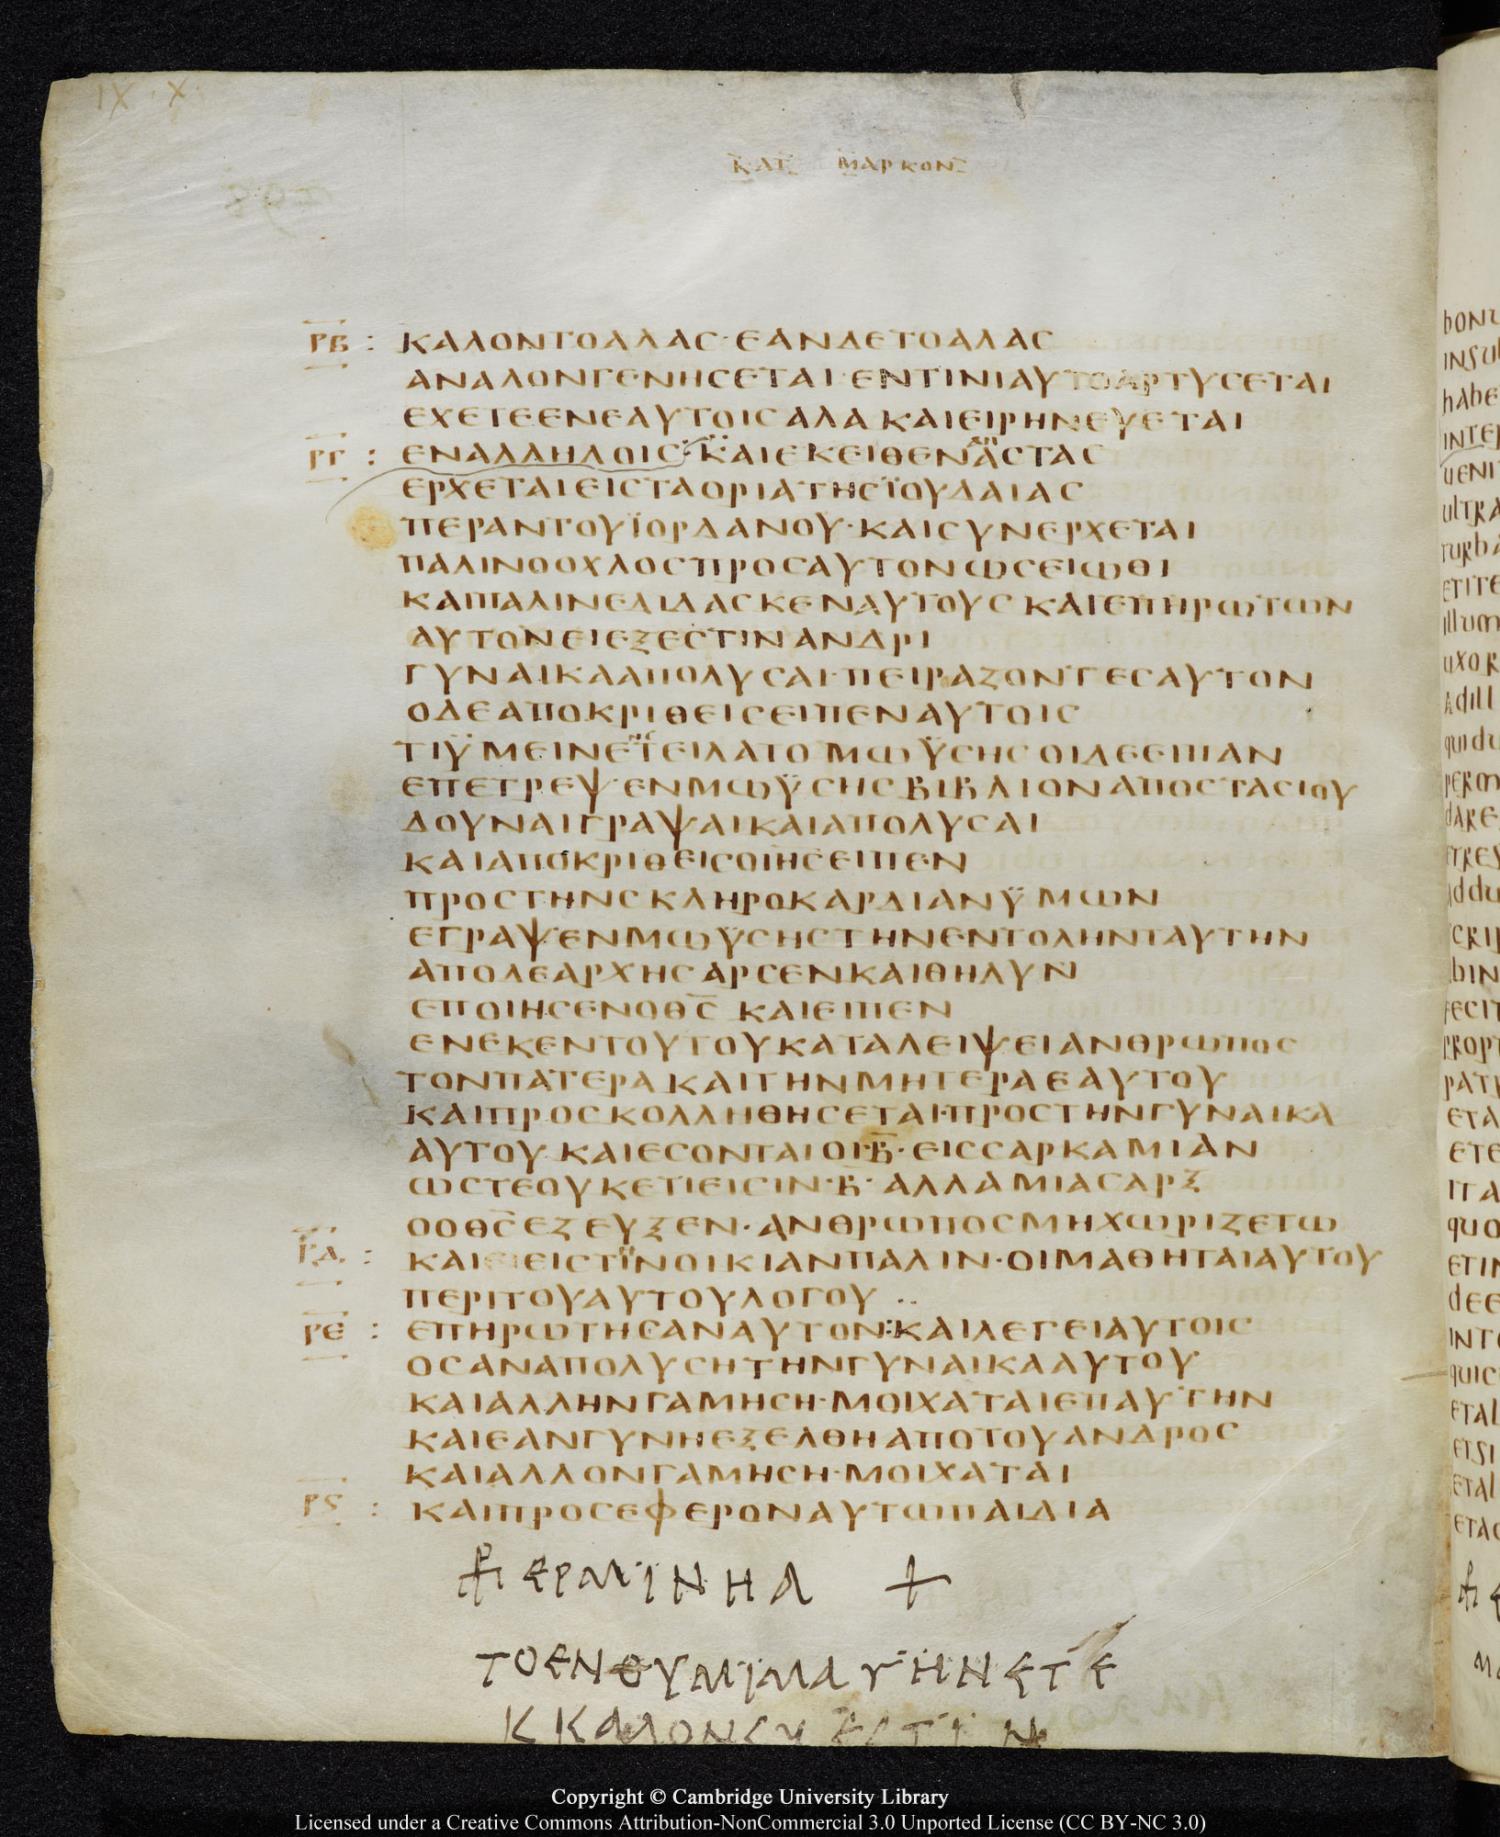 ΙΧ·Χ·
ΚΑΤ ΜΑΡΚΟΝ
ΡΒ : ΚΑΛΟΝΤΟΑΛΑϹ·ΕΑΝΔΕΤΟΑΛΑϹ
ΑΝΑΛΟΝΓΕΝΗϹΕΤΑΙ·ΕΝΤΙΝΙΑΥΤΟΑΡΤΥϹΕΤΑΙ
ΕΧΕΤΕΕΝΕΑΥΤΟΙϹΑΛΑ ΚΑΙΕΙΡΗΝΕΥΕΤΑΙ
ΡΓ : ΕΝΑΛΛΗΛΟΙϹ:ΚΑΙΕΚΕΙΘΕΝΑΝΑϹΤΑϹ
ΕΡΧΕΤΑΙΕΙϹΤΑΟΡΙΑΤΗϹΪΟΥΔΑΙΑϹ
ΠΕΡΑΝΤΟΥΪΟΡΔΑΝΟΥ·ΚΑΙϹΥΝΕΡΧΕΤΑΙ
ΠΑΛΙΝΟΟΧΛΟϹΠΡΟϹΑΥΤΟΝΩϹΕΙΩΘΙ
ΚΑΙΠΑΛΙΝΕΔΙΔΑϹΚΕΝΑΥΤΟΥϹ ΚΑΙΕΠΗΡΩΤΩΝ
ΑΥΤΟΝΕΙΕΞΕϹΤΙΝΑΝΔΡΙ
ΓΥΝΑΙΚΑΑΠΟΛΥϹΑΙ·ΠΕΙΡΑΖΟΝΤΕϹΑΥΤΟΝ
ΟΔΕΑΠΟΚΡΙΘΕΙϹΕΙΠΕΝΑΥΤΟΙϹ
ΤΙΫΜΕΙΝΕΤΕΙΛΑΤΟ ΜΩΫϹΗϹΟΙΔΕΕΙΠΑΝ
ΕΠΕΤΡΕΨΕΝΜΩΫϹΗϹΒΙΒΛΙΟΝΑΠΟϹΤΑϹΙΟΥ
ΔΟΥΝΑΙΓΡΑΨΑΙΚΑΙΑΠΟΛΥϹΑΙ
ΚΑΙΑΠΟΚΡΙΘΕΙϹΟΙΗϹΕΙΠΕΝ
ΠΡΟϹΤΗΝϹΚΛΗΡΟΚΑΡΔΙΑΝΫΜΩΝ
ΕΓΡΑΨΕΝΜΩΫϹΗϹΤΗΝΕΝΤΟΛΗΝΤΑΥΤΗΝ
ΑΠΟΔΕΑΡΧΗϹΑΡϹΕΝΚΑΙΘΗΛΥΝ
ΕΠΟΙΗϹΕΝΟΘϹ ΚΑΙΕΙΠΕΝ
ΕΝΕΚΕΝΤΟΥΤΟΥΚΑΤΑΛΕΙΨΕΙΑΝΘΡΩΠΟϹ
ΤΟΝΠΑΤΕΡΑΚΑΙΤΗΝΜΗΤΕΡΑΕΑΥΤΟΥ
ΚΑΙΠΡΟϹΚΟΛΛΗΘΗϹΕΤΑΙ·ΠΡΟϹΤΗΝΓΥΝΑΙΚΑ
ΑΥΤΟΥ·ΚΑΙΕϹΟΝΤΑΙΟΙ·Β·ΕΙϹϹΑΡΚΑΜΙΑΝ
ΩϹΤΕΟΥΚΕΤΙΕΙϹΙΝ·Β·ΑΛΛΑΜΙΑϹΑΡΞ
ΟΟΘϹΕΖΕΥΞΕΝ·ΑΝΘΡΩΠΟϹΜΗΧΩΡΙΖΕΤΩ
ΡΔ : ΚΑΙ ΕΙϹΤΗΝΟΙΚΙΑΝΠΑΛΙΝ·ΟΙΜΑΘΗΤΑΙΑΥΤΟΥ
ΠΕΡΙΤΟΥΑΥΤΟΥΛΟΓΟΥ
ΡΕ : ΕΠΗΡΩΤΗϹΑΝΑΥΤΟΝ:ΚΑΙΛΕΓΕΙΑΥΤΟΙϹ
ΟϹΑΝΑΠΟΛΥϹΗΤΗΝΓΥΝΑΙΚΑΑΥΤΟΥ
ΚΑΙΑΛΛΗΝΓΑΜΗϹΗ·ΜΟΙΧΑΤΑΙΕΠΑΥΤΗΝ
ΚΑΙΕΑΝΓΥΝΗΕΞΕΛΘΗΑΠΟΤΟΥΑΝΔΡΟϹ
ΚΑΙΑΛΛΟΝΓΑΜΗϹΗ·ΜΟΙΧΑΤΑΙ
ΡϚ : ΚΑΙΠΡΟϹΕΦΕΡΟΝΑΥΤΩΠΑΙΔΙΑ
ΕΡΜΙΝΗΑ +
Copyright © Cambridge University Library
Licensed under a Creative Commons Attribution-NonCommercial 3.0 Unported License (CC BY-NC 3.0)